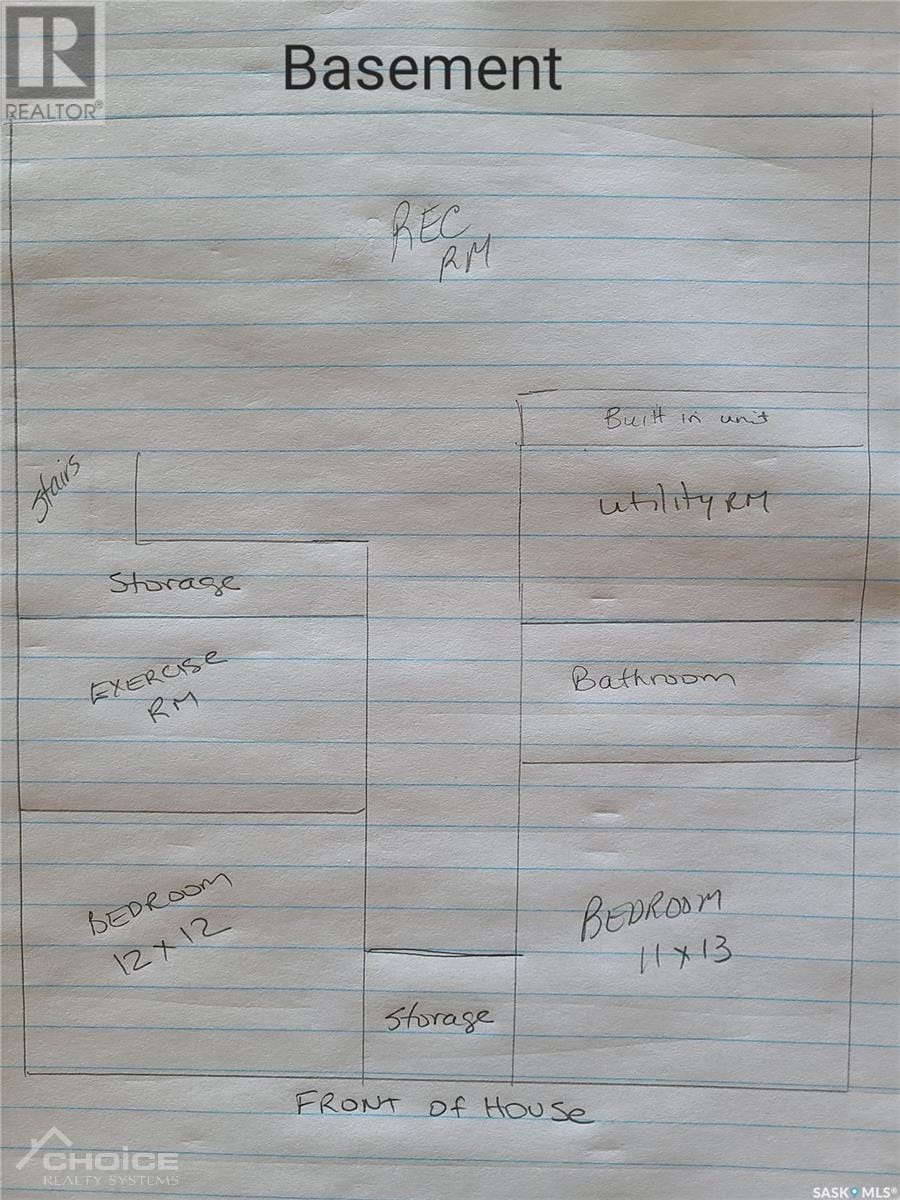 REALTOR®
Basement
REC
RM
Built in unit
Stairs
Utility RM
Storage
EXERCISE
RM
Bathroom
BEDROOM
12 x 12
BEDROOM
11 x 13
Storage
FRONT of HOUSE
CHOICE
REALTY SYSTEMS
SASK MLS®